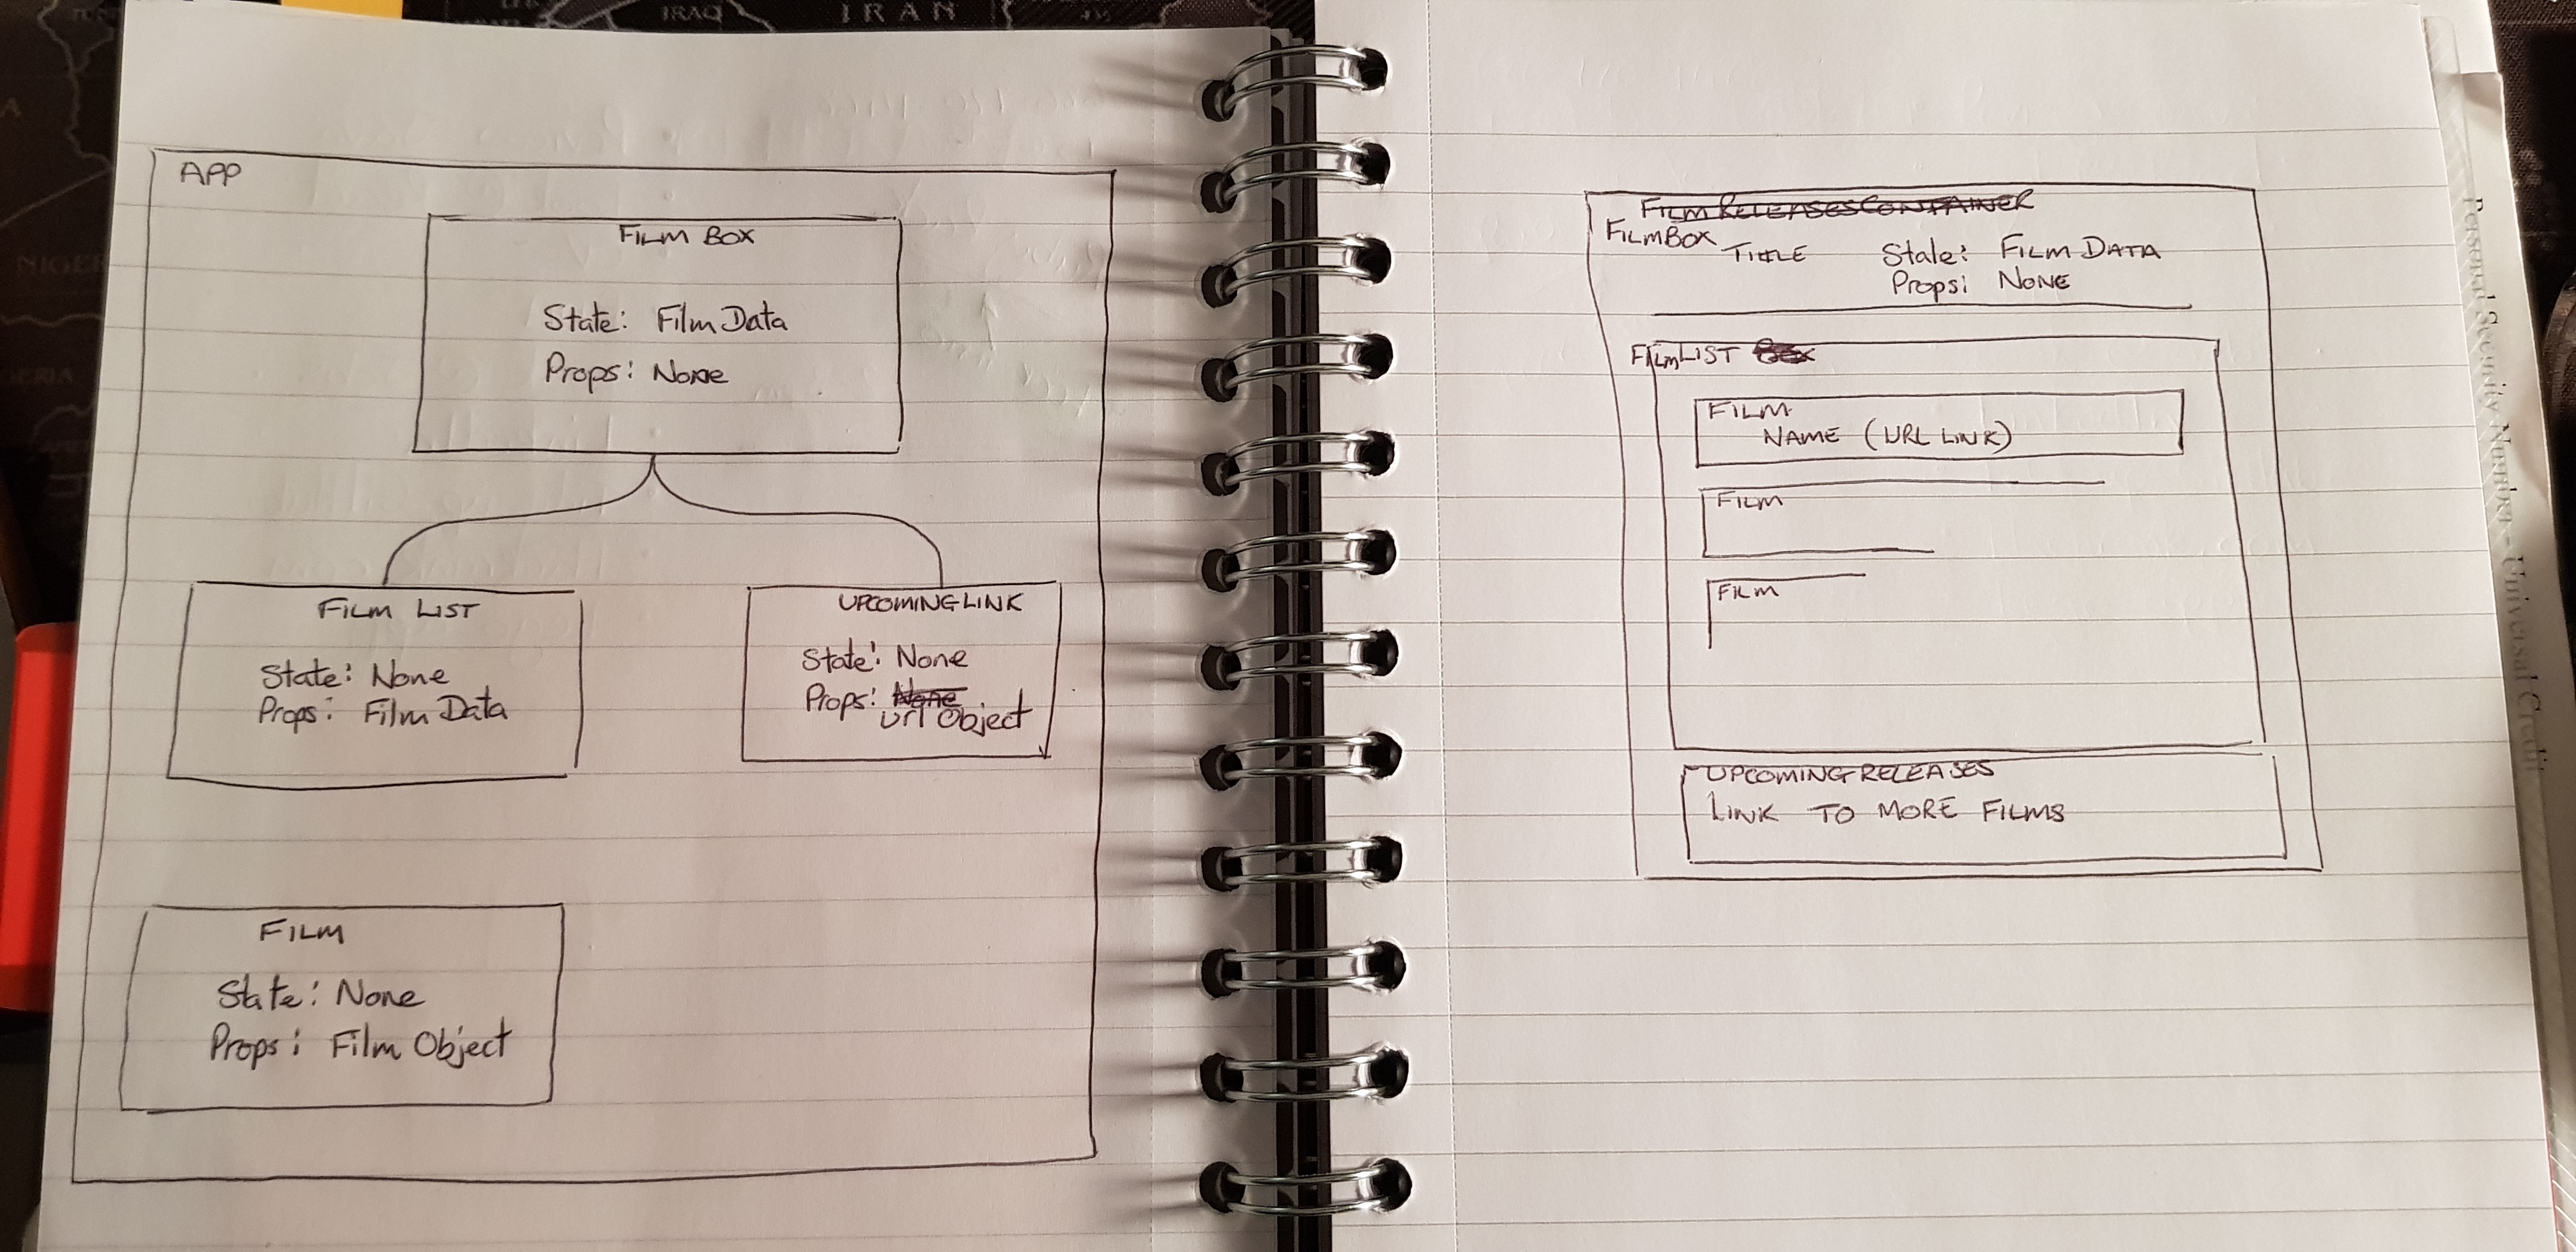 IRAQ
IRAN
NIGER
APP
FILM BOX
State: Film Data
Props: None
FILM LIST
State: None
Props: Film Data
UPCOMINGLINK
State: None
Props: None
Url Object
FILM
State: None
Props: Film Object
FILMRELEASESCONTAINER
FILMBOX
TITLE
State: FILM DATA
Props: NONE
FILMLIST BOX
FILM
NAME (URL LINK)
FILM
FILM
UPCOMINGRELEASES
LINK TO MORE FILMS
Personal Security Number - Universal Credit